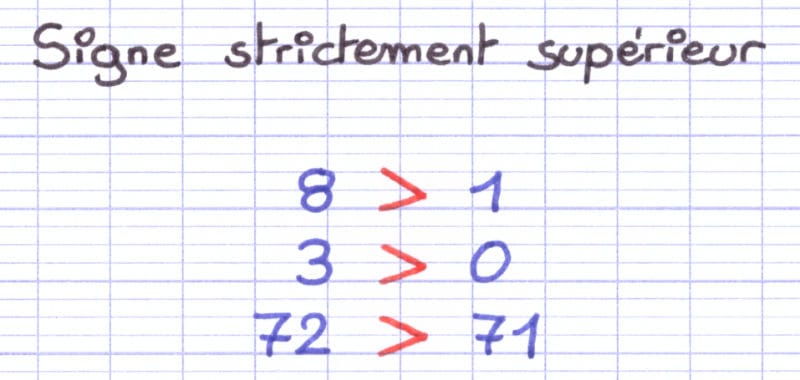 Signe strictement supérieur
8 > 1
3 > 0
72 > 71